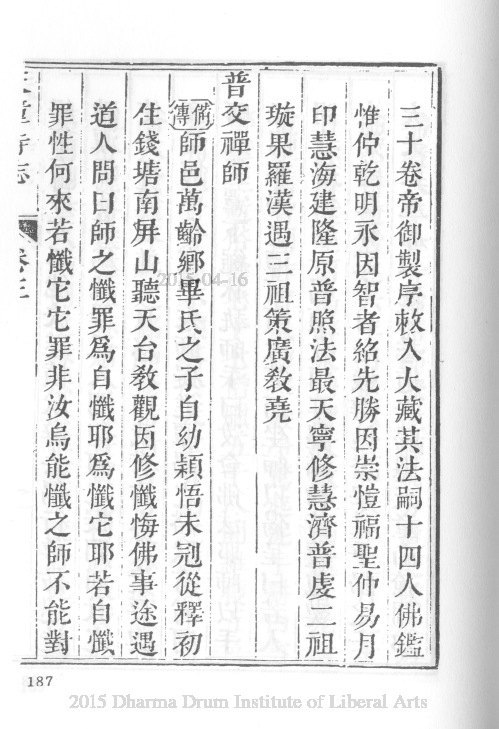 三十卷帝御製序敕入大藏其法嗣十四人佛鑑
惟仲乾明永因智者紹先勝因崇愷福聖仲易月
印慧海建隆原普照法最天寧修慧濟普虔二祖
璇果羅漢遇三祖策廣教堯
普交禪師
備傳師邑萬齡鄉畢氏之子自幼穎悟未冠從釋初
住錢塘南屏山聽天台教觀因修懺悔佛事途遇
道人問曰師之懺罪爲自懺耶爲懺它耶若自懺
罪性何來若懺它它罪非汝烏能懺之師不能對
卷三
187
2015-04-16
2015 Dharma Drum Institute of Liberal Arts